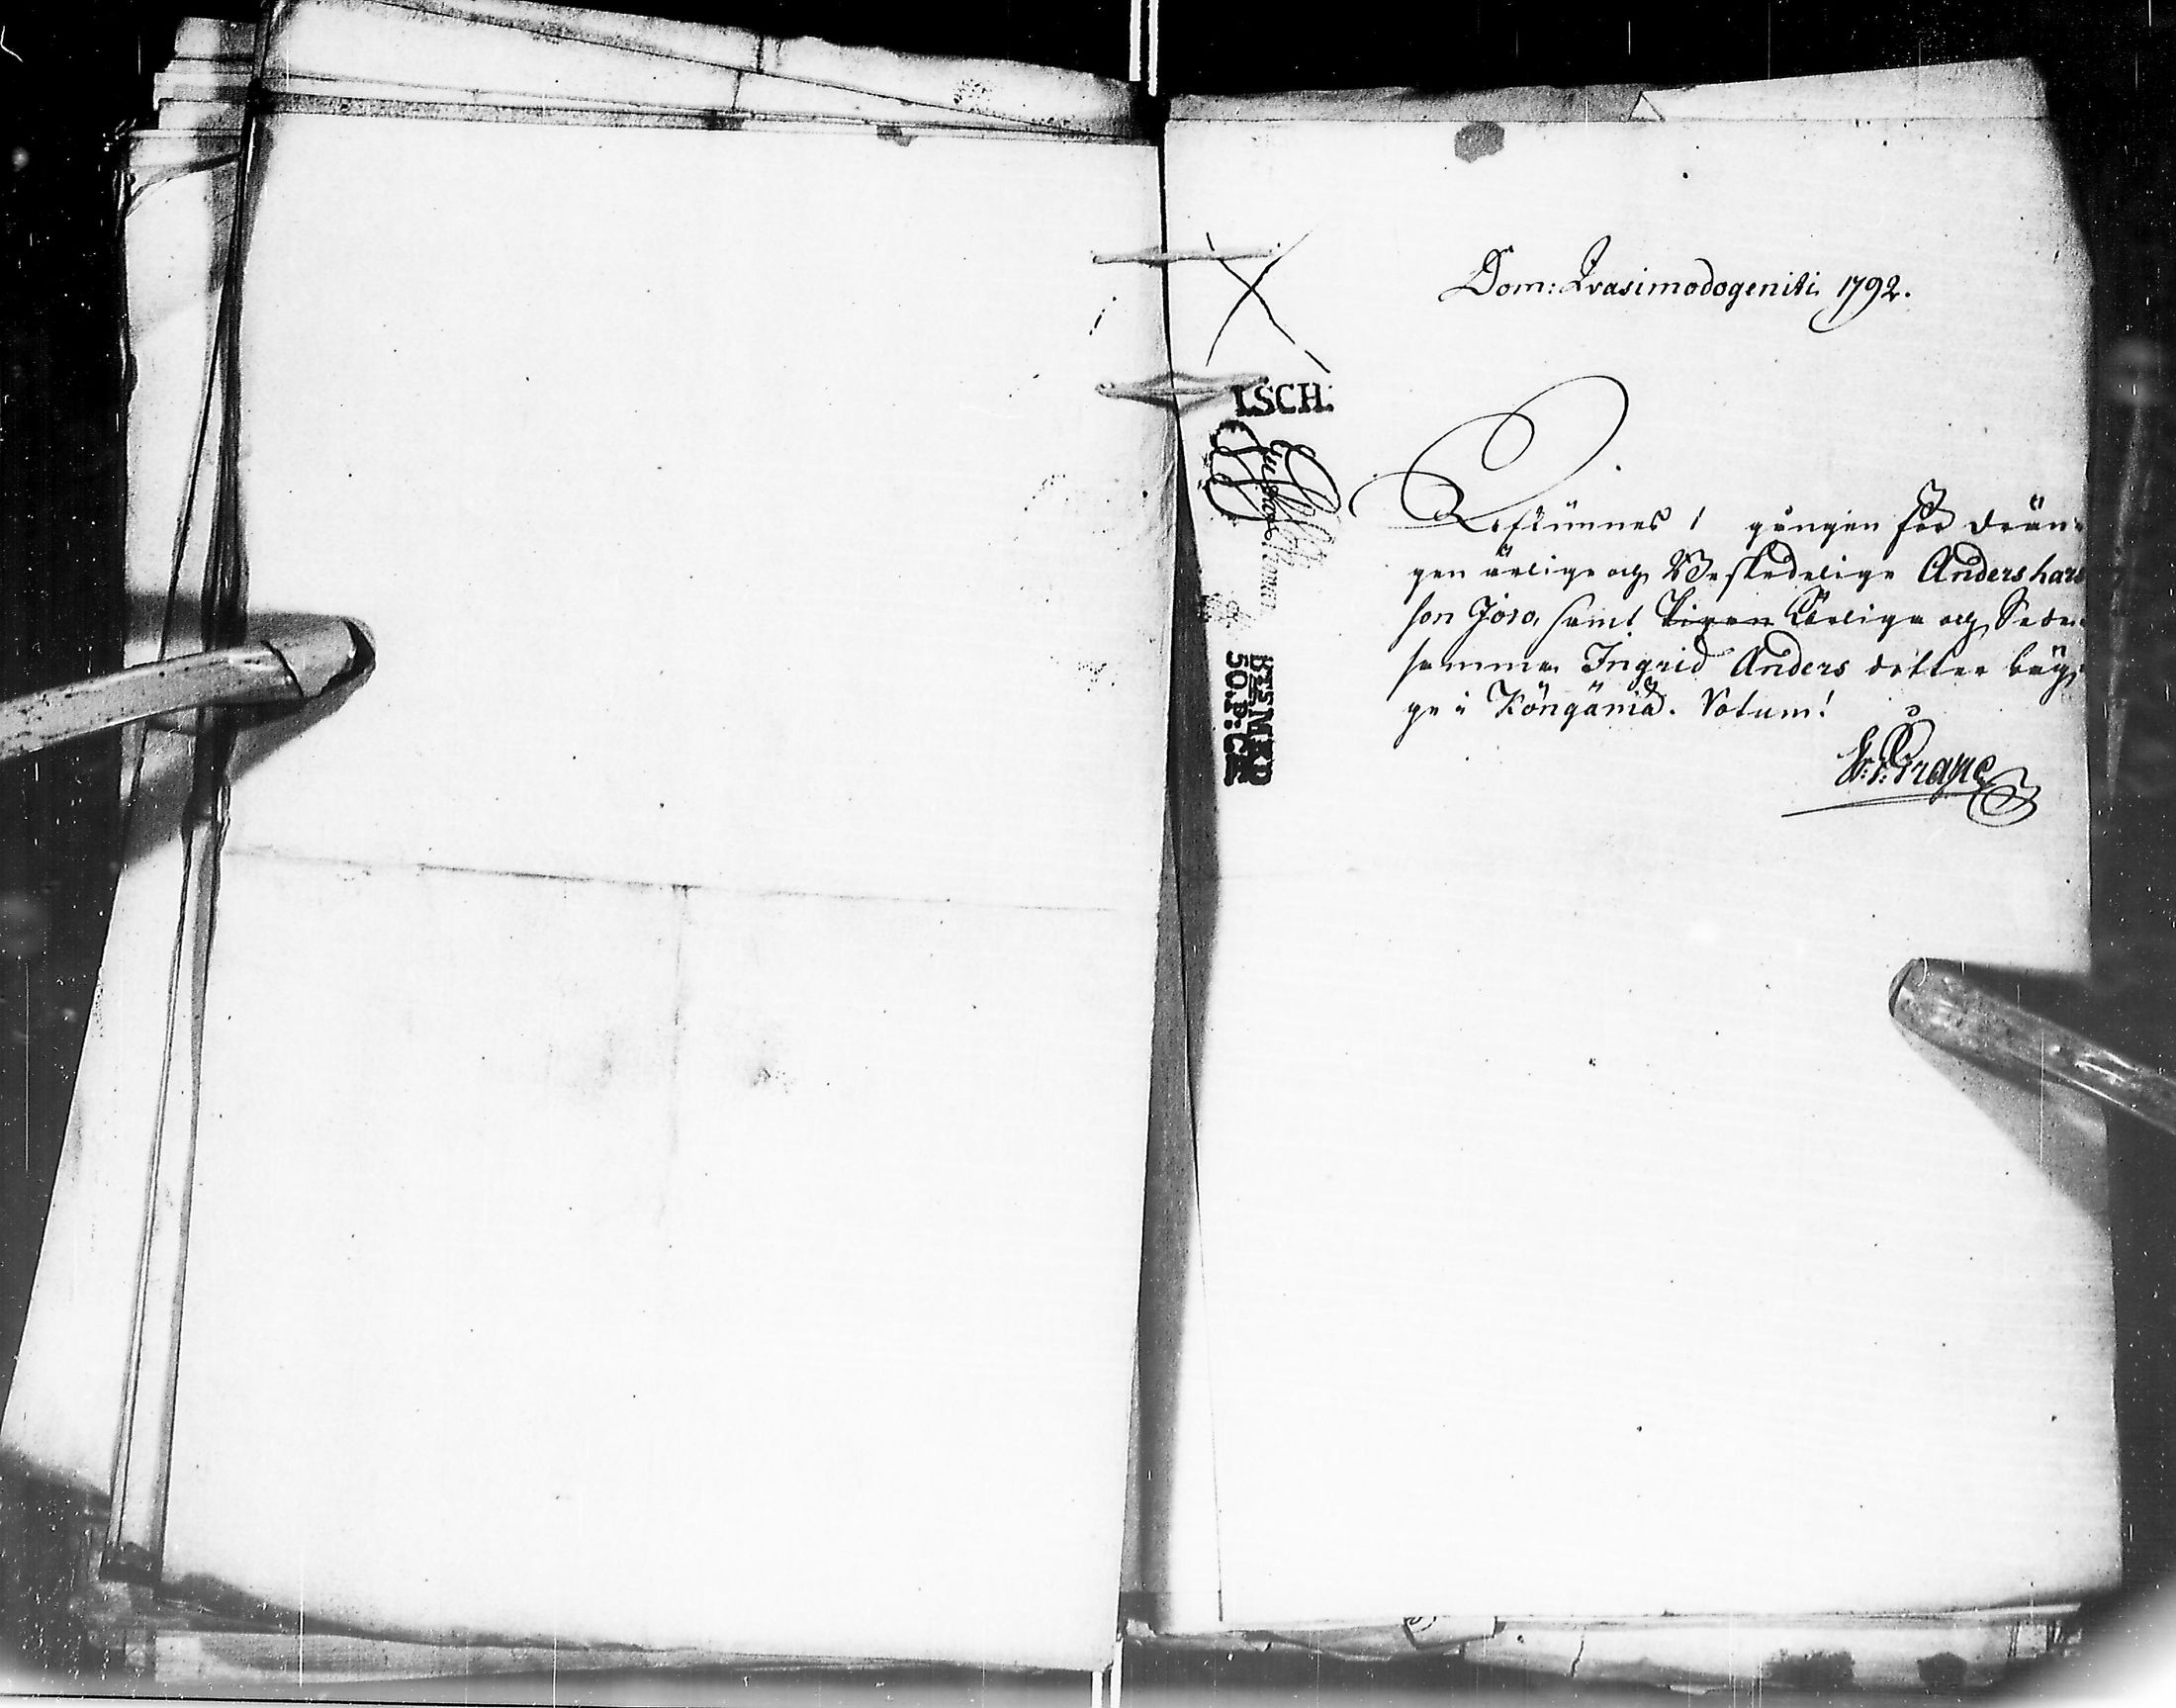 Dom: Qvasimodogeniti 1792.
LSCH.
Afkunnes 1 gången för drän-
gen ärlige och Beskedelige Anders Lars
son Joso, samt Pigan Ärliga och Sede-
samma Ingrid Anders dotter bäg-
ge i Köngämä. Votum!